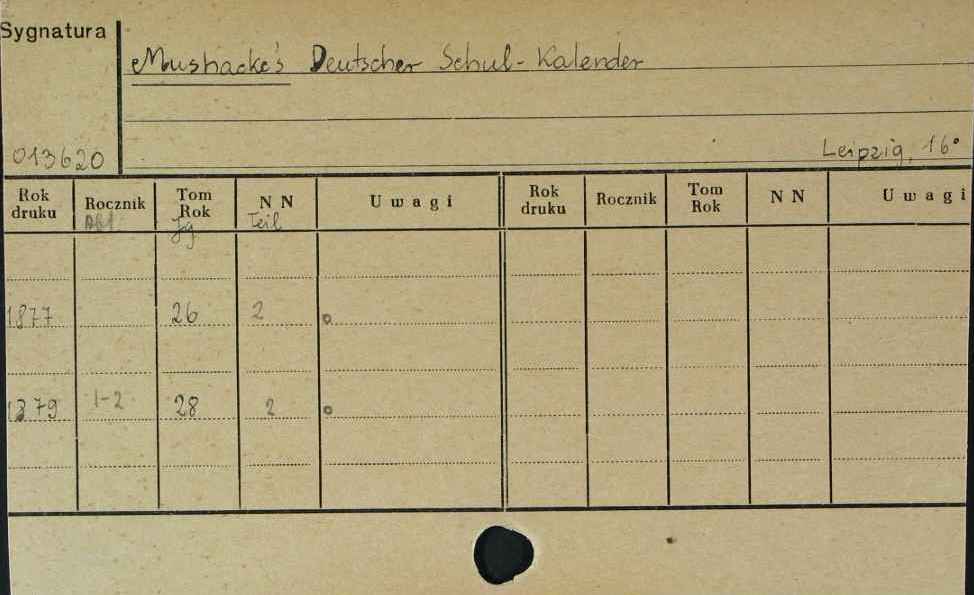 Sygnatura
Mushacke's Deutscher Schul-Kalender
013620
Leipzig, 16°
Rok druku Rocznik Tom Rok NN Uwagi Rok druku Rocznik Tom Rok NN Uwagi
Abt Jg Teil
1877 26 2 o
1879 1-2 28 2 o